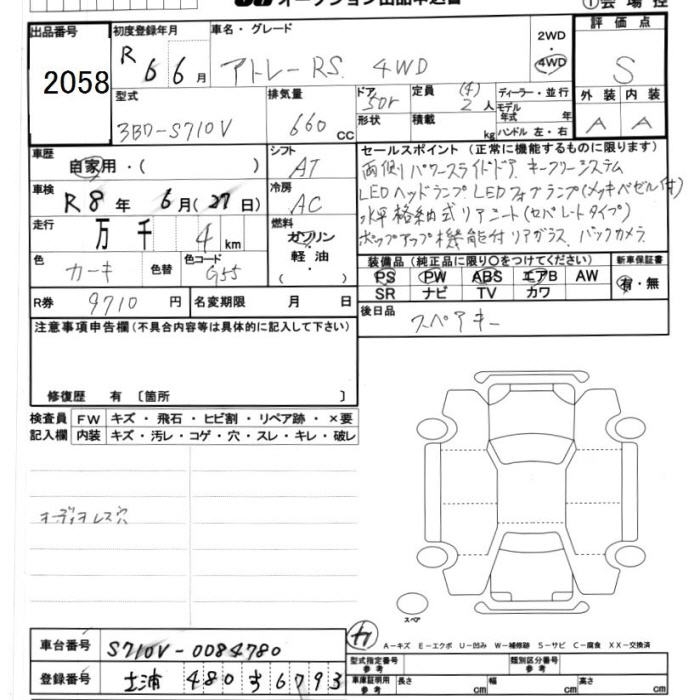 オークション出品申込書
①会場控
出品番号
2058
初度登録年月
R 6 6月
車名・グレード
アトレーRS. 4WD
2WD
4WD
評価点
S
型式
3BD-S710V
排気量
660 CC
ドア
5Dr
形状
定員 (4) 2人
積載 kg
ディーラー・並行
モデル年式 年
ハンドル 左・右
外装 内装
A A
車歴
自家用・( )
シフト
AT
車検
R8年 6月(27日)
冷房
AC
走行
万 千 4 km
燃料
ガソリン・軽油・( )
色
カーキ
色替
色コード
G55
R券 9710円
名変期限 月 日
セールスポイント(正常に機能するものに限ります)
両側パワースライドドア キーフリーシステム
LEDヘッドランプ LEDフォグランプ(メッキベゼル付)
水平格納式リアシート(セパレートタイプ)
ポップアップ機能付リアガラス バックカメラ
装備品(純正品に限り○をつけてください)
PS PW ABS エアB AW
SR ナビ TV カワ
新車保証書
有・無
後日品
スペアキー
注意事項申告欄(不具合内容等は具体的に記入して下さい)
修復歴 有〔箇所 〕
検査員記入欄
FW キズ・飛石・ヒビ割・リペア跡・×要
内装 キズ・汚レ・コゲ・穴・スレ・キレ・破レ
オーディオレス穴
スペア
車台番号 S710V-0084780
登録番号 土浦 480 す 6793
A-キズ E-エクボ U-凹み W-補修跡 S-サビ C-腐食 XX-交換済
型式指定番号 参考
類別区分番号 参考
車庫証明用 参考
長さ cm 幅 cm 高さ cm